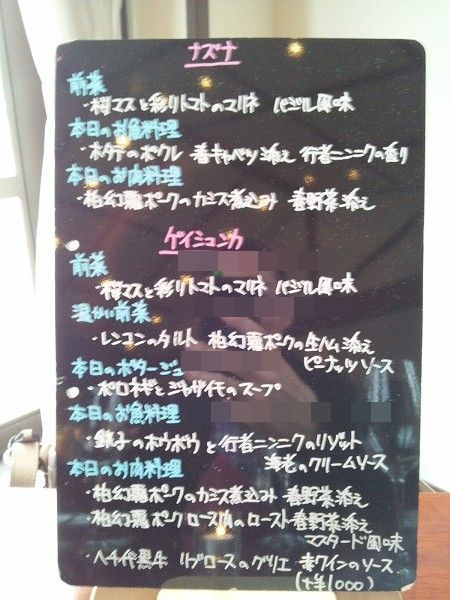 ナズナ
前菜
・桜マスと彩りトマトのマリネ バジル風味
本日のお魚料理
・ホタテのポワレ 春キャベツ添え 行者ニンニクの香り
本日のお肉料理
・柏幻霜ポークのカシス煮込み 春野菜添え
ゲイショカ
前菜
・桜マスと彩りトマトのマリネ バジル風味
温かい前菜
・レンコンのタルト 柏幻霜ポークの生ハム添え
ピーナッツソース
本日のポタージュ
・ポロネギとジャガイモのスープ
本日のお魚料理
・銚子のホウボウと行者ニンニクのリゾット
海老のクリームソース
本日のお肉料理
・柏幻霜ポークのカシス煮込み 春野菜添え
・柏幻霜ポークロース肉のロースト春野菜添え
マスタード風味
・八千代黒牛 リブロースのグリエ 赤ワインのソース
(+¥1000)